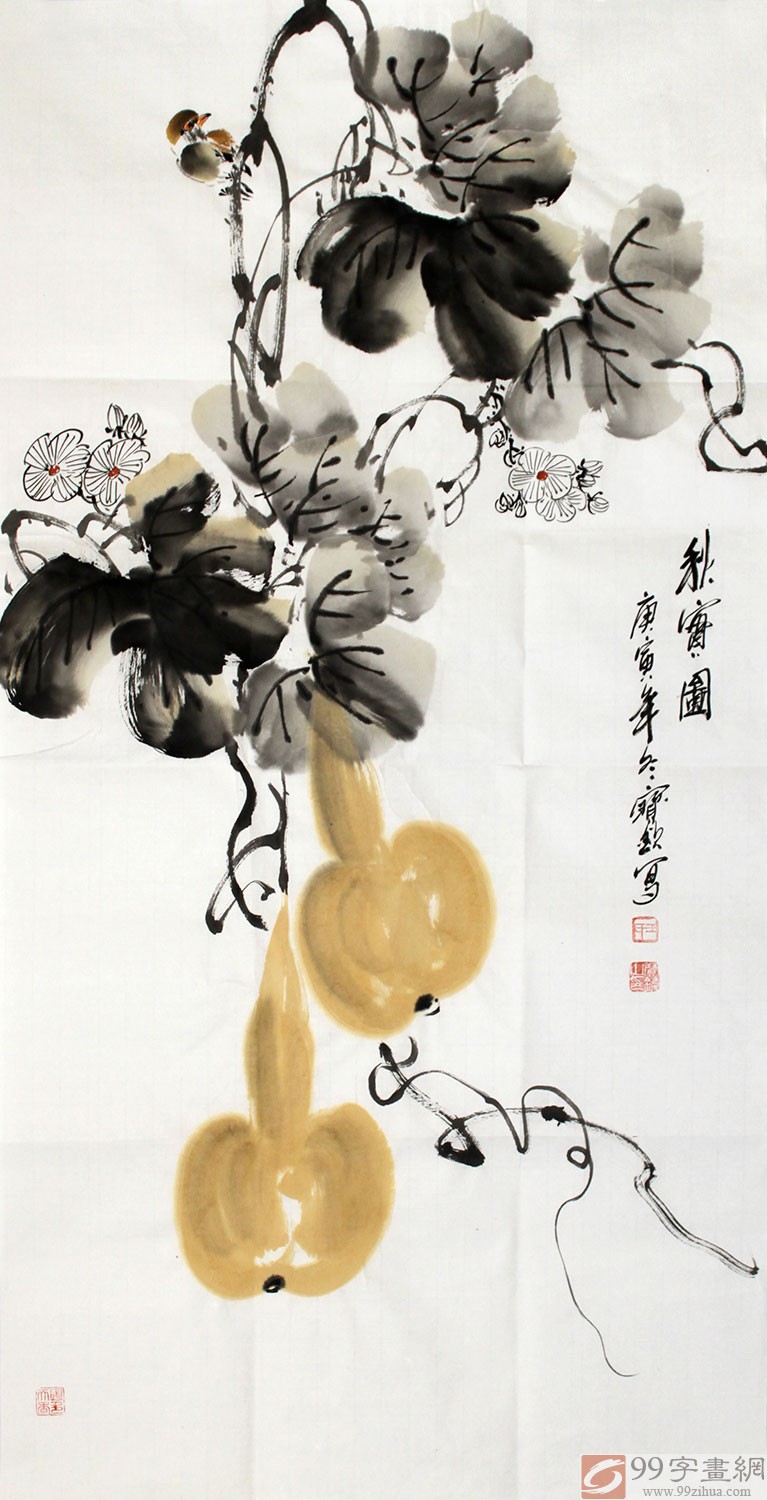 秋實圖
庚寅年冬寶欽寫
99字畫網
www.99zihua.com